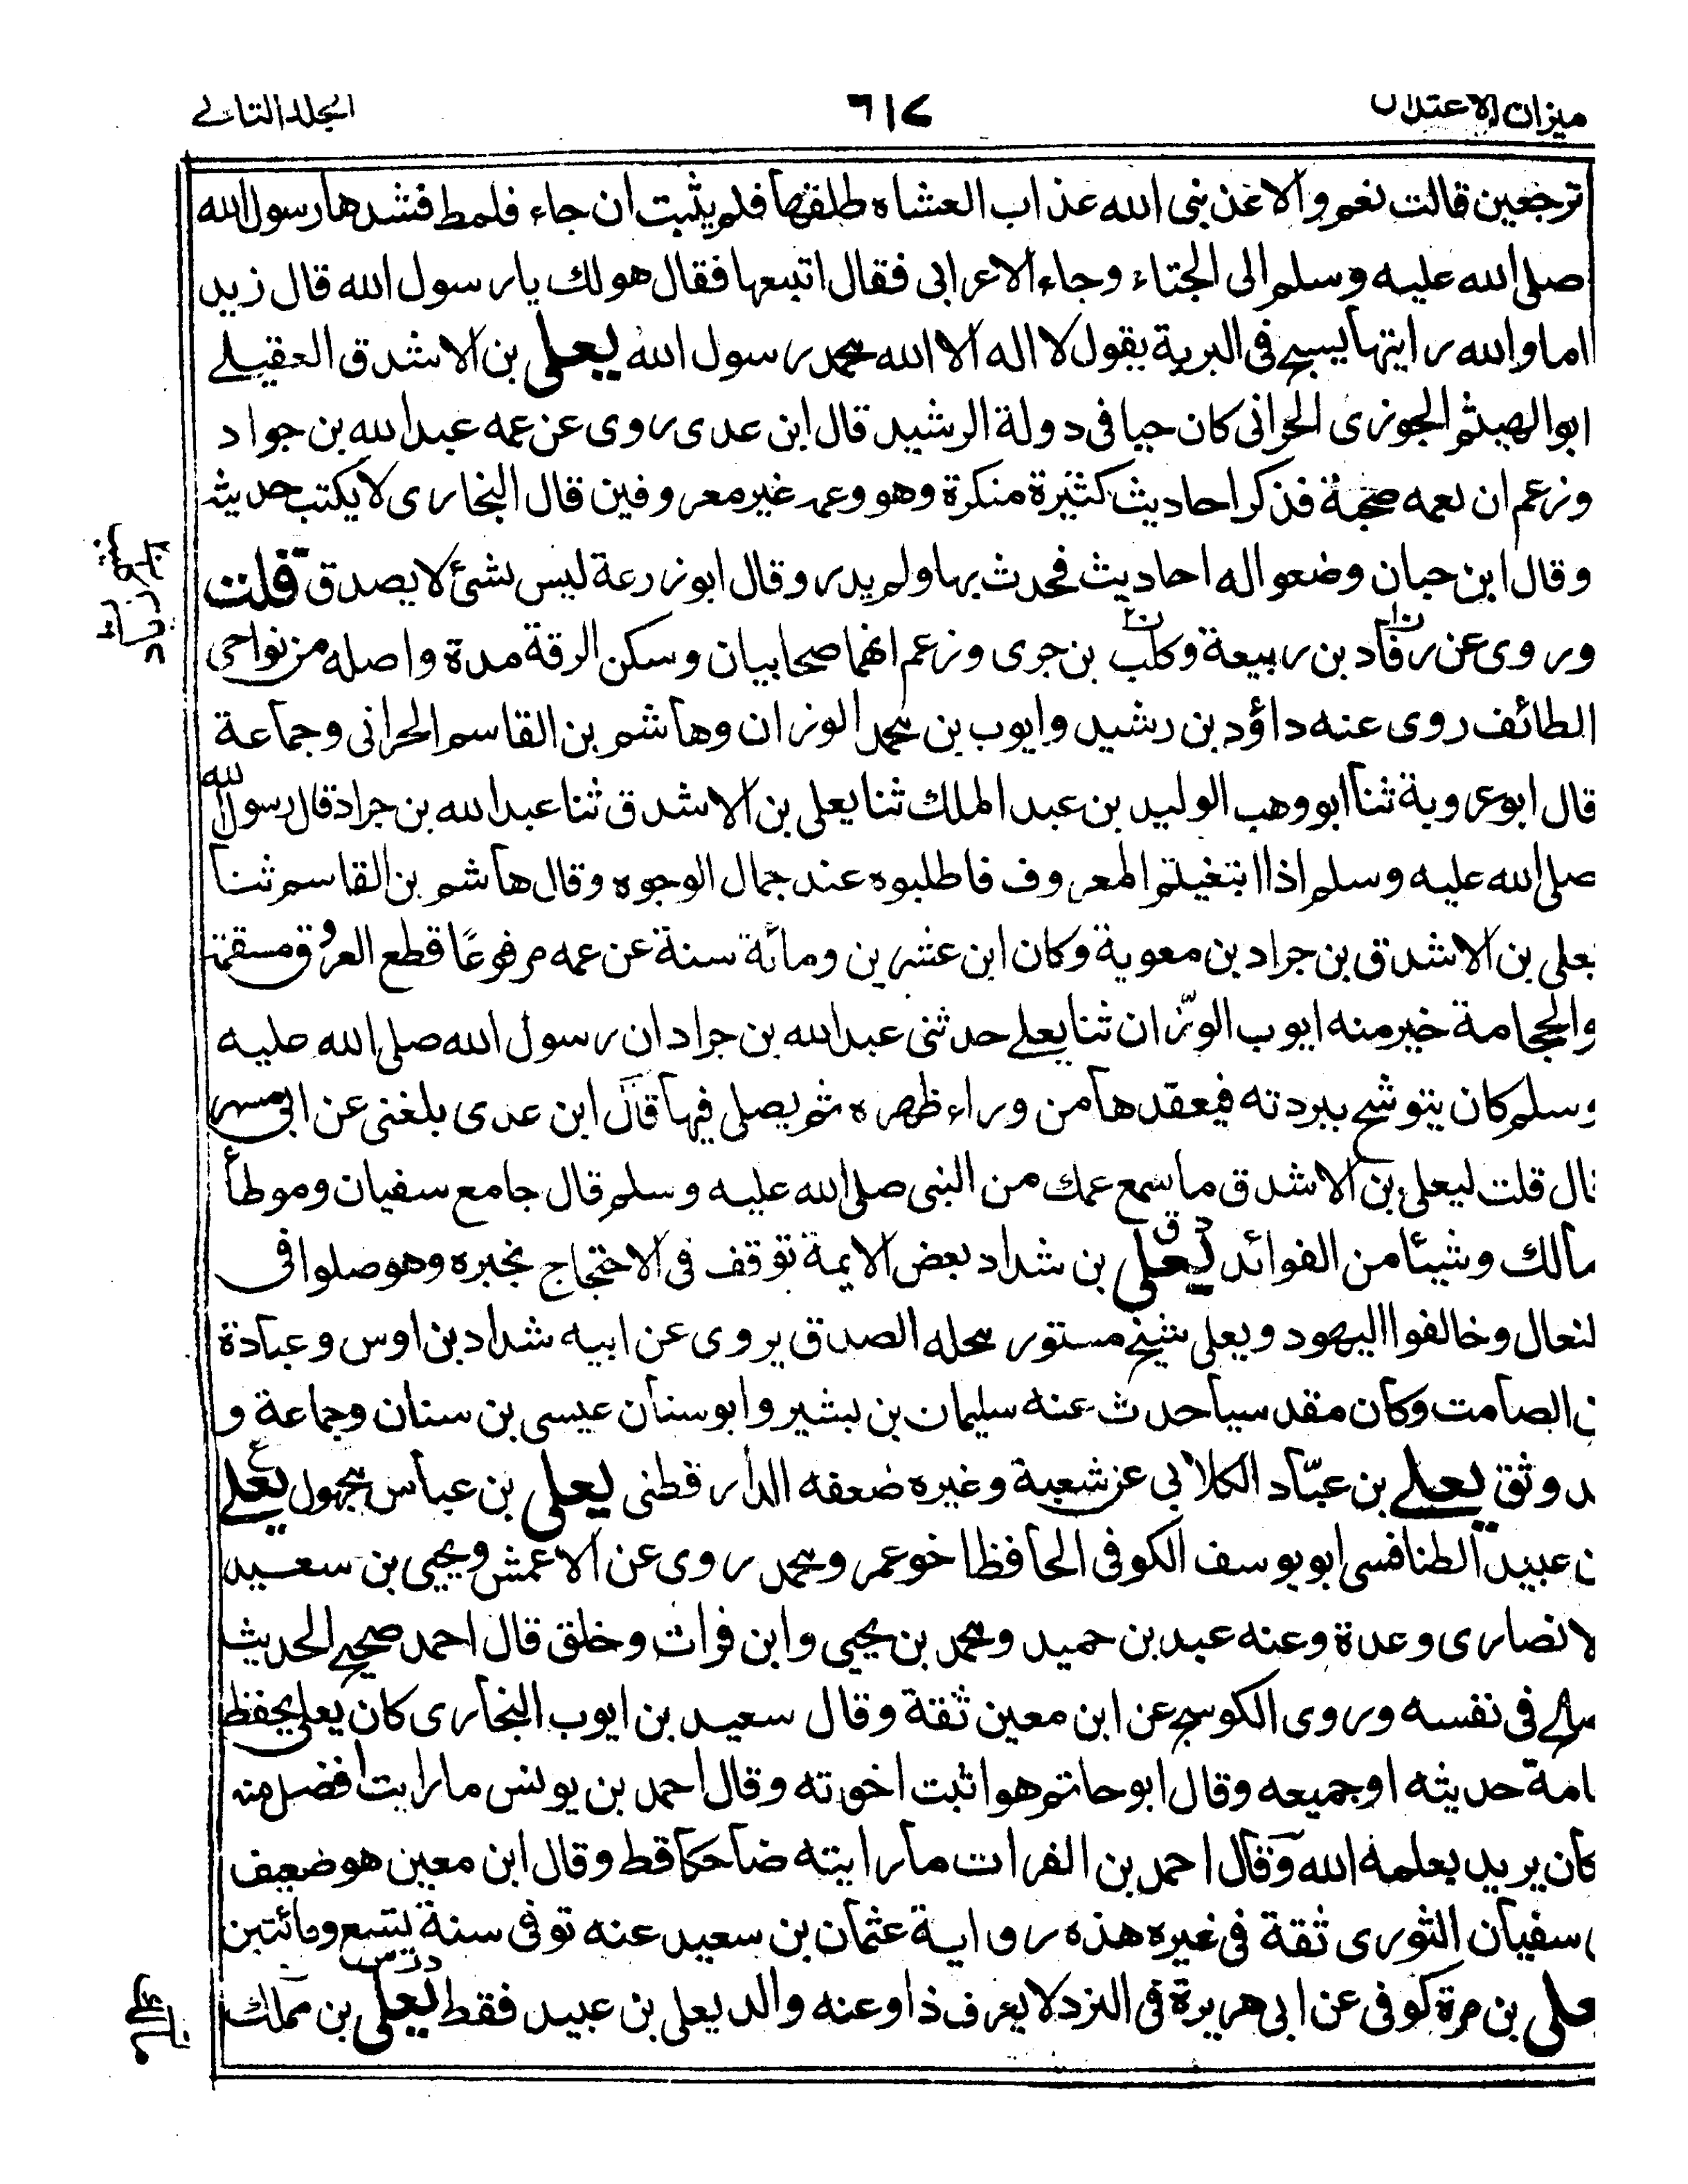 ميزان الاعتدال ٦١٧ المجلد الثاني
ترجعين قالت نعم والا عذبنی الله عذاب العشاه طلقها فلم يثبت ان جاء فلمط فشدها رسول الله
صلی الله عليه وسلم الی الجتاء وجاء الاعرابی فقال اتبيعها فقال هو لك يا رسول الله قال زيد
اما والله رايتها يسبح فی البرية يقول لا اله الا الله محمد رسول الله يعلی بن الاشدق العقيلے
ابو الهيثم الجوزری الحرانی كان حيا فی دولة الرشيد قال ابن عدی روی عن عمه عبد الله بن جواد
وزعم ان لعمه صحبة فذكر احاديث كثيرة منكرة وهو وعمه غير معروفين قال البخاری لا يكتب حديثه
وقال ابن حبان وضعوا له احاديث فحدث بها ولم يدر وقال ابو زرعة ليس بشئ لا يصدق قلت
وروی عن رفاد بن ربيعة وكلب بن جری وزعم انهما صحابيان وسكن الرقة مدة واصله من نواحی
الطائف روی عنه داؤد بن رشيد وايوب بن محمد الوزان وهاشم بن القاسم الحرانی وجماعة
قال ابو عروبة ثنا ابو وهب الوليد بن عبد الملك ثنا يعلی بن الاشدق ثنا عبد الله بن جراد قال رسول الله
صلی الله عليه وسلم اذا ابتغيتم المعروف فاطلبوه عند جمال الوجوه وقال هاشم بن القاسم ثنا
يعلی بن الاشدق بن جراد بن معوية وكان ابن عشرين ومائة سنة عن عمه مرفوعًا قطع العروق مسقمة
والحجامة خير منه ايوب الوزّان ثنا يعلے حدثنی عبد الله بن جراد ان رسول الله صلی الله عليه
وسلم كان يتوشح ببردته فيعقدها من وراء ظهره ثم يصلی فيها قال ابن عدی بلغنی عن ابی مسهر
قال قلت ليعلی بن الاشدق ما سمع عمك من النبی صلی الله عليه وسلم قال جامع سفيان وموطأ
مالك وشيئا من الفوائد يعلی بن شداد بعض الايمة توقف فی الاحتجاج بخبره وهو صلوا فی
لنعال وخالفوا اليهود ويعلی شيخ مستور محله الصدق يروی عن ابيه شداد بن اوس وعبادة
ن الصامت وكان مقدسيا حدث عنه سليمان بن بشير وابو سنان عيسی بن سنان وجماعة و
ـد وثق يعلے بن عبّاد الكلابی عن شعبة وغيره ضعفه الدارقطنی يعلی بن عباس مجهول يعلے
ن عبيد الطنافسی ابو يوسف الكوفی الحافظ اخو عمر ومحمد روی عن الاعمش ويحيی بن سعيد
لانصاری وعدة وعنه عبد بن حميد ومحمد بن يحيی وابن فرات وخلق قال احمد صحيح الحديث
صالح فی نفسه وروی الكوسج عن ابن معين ثقة وقال سعيد بن ايوب البخاری كان يعلی يحفظ
امة حديثه او جميعه وقال ابو حاتم هو اثبت اخوته وقال احمد بن يونس ما رايت افضل منه
كان يريد بعلمه الله وقال احمد بن الفرات ما رايته ضاحكا قط وقال ابن معين هو ضعيف
سفيان الثوری ثقة فی غيره هذه رواية عثمان بن سعيد عنه توفی سنة تسع ومائتين
ـعلی بن مرة كوفی عن ابی هريرة فی النرد لا يعرف ذا وعنه والد يعلی بن عبيد فقط يعلی بن مملك